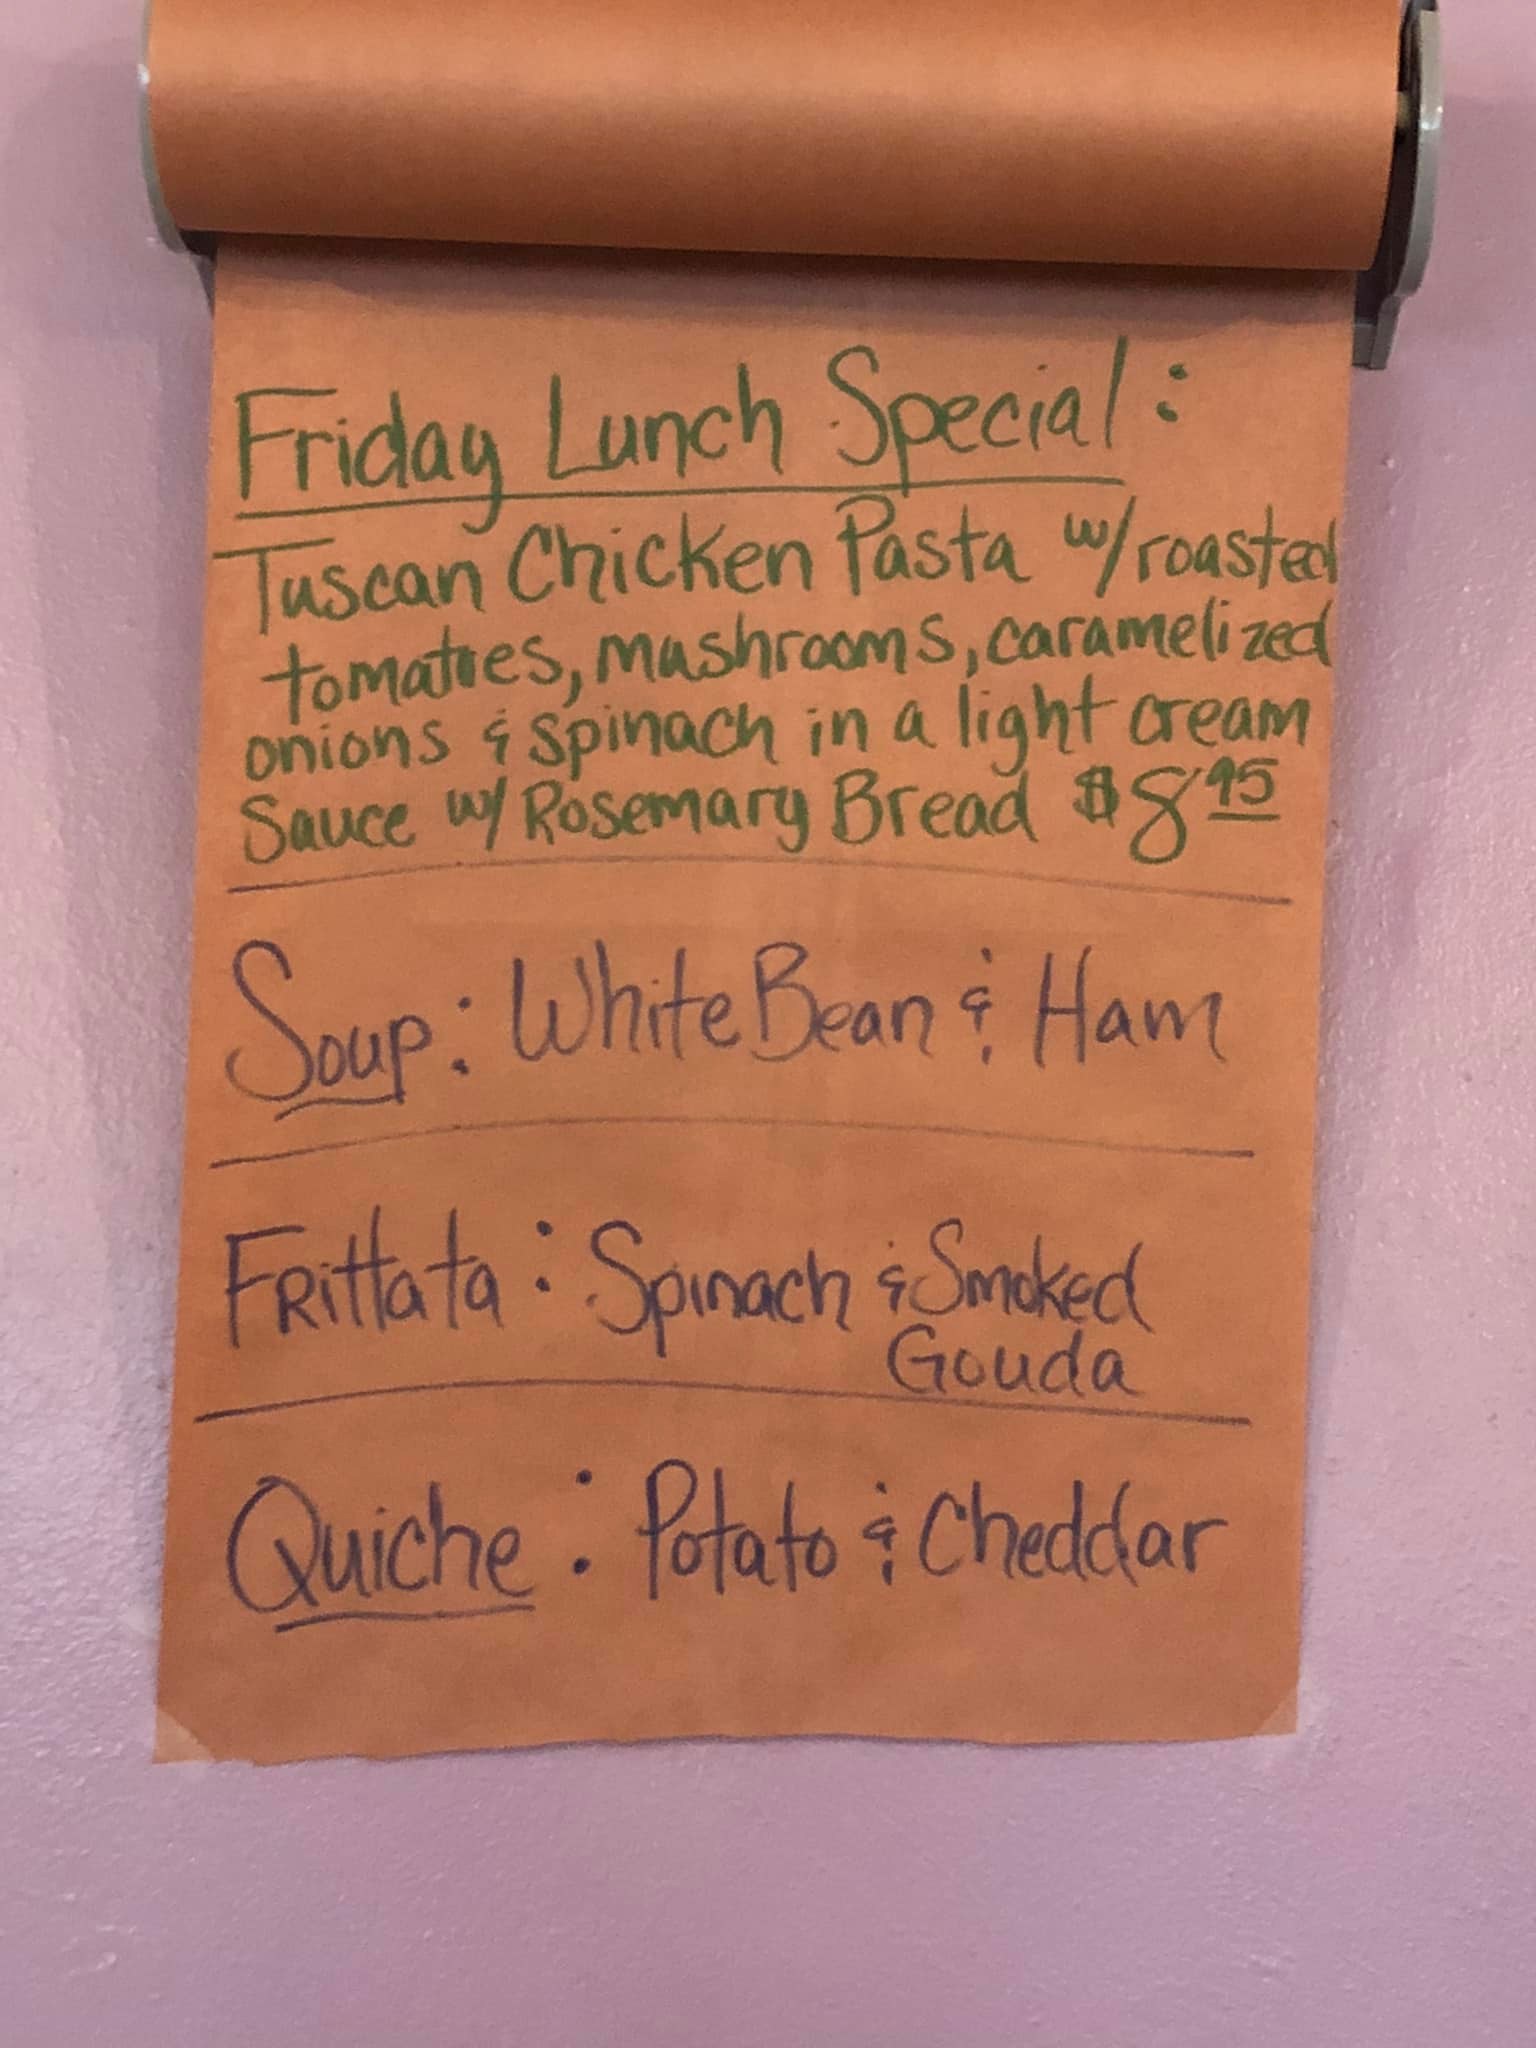 Friday Lunch Special:
Tuscan Chicken Pasta w/ roasted
tomatoes, mushrooms, caramelized
onions & spinach in a light cream
Sauce w/ Rosemary Bread $8.95
Soup: White Bean & Ham
Frittata: Spinach & Smoked
Gouda
Quiche: Potato & Cheddar